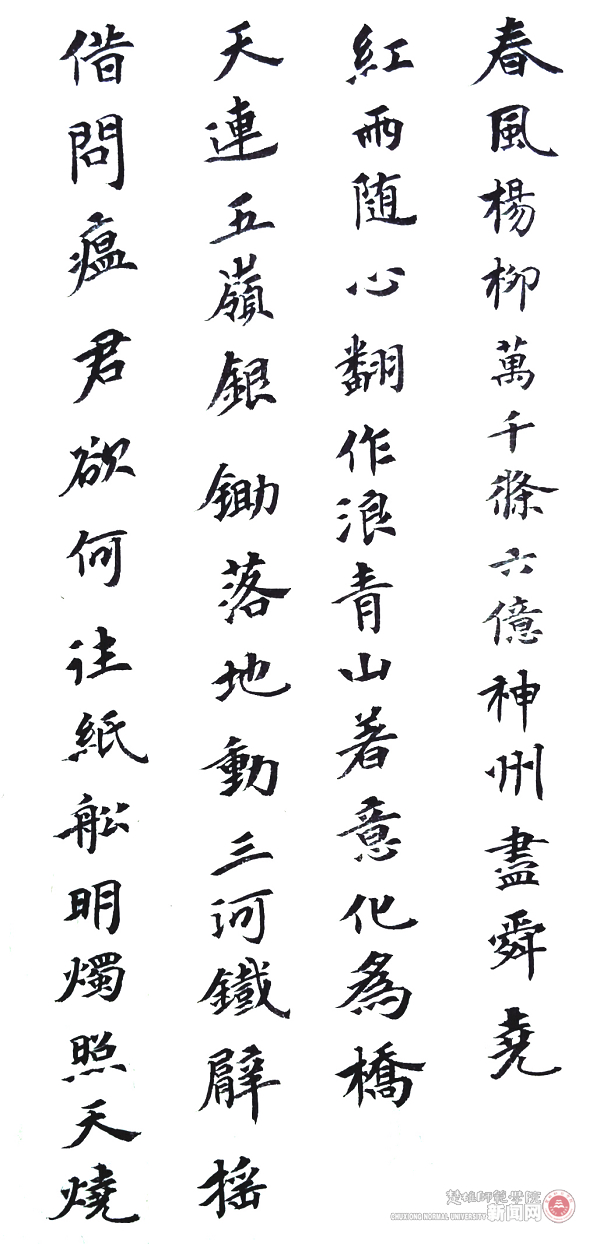 春風楊柳萬千條六億神州盡舜堯
紅雨随心翻作浪青山著意化為橋
天連五嶺銀鋤落地動三河鐵臂摇
借問瘟君欲何往紙舩明燭照天燒
楚雄師範學院
CHUXIONG NORMAL UNIVERSITY 新闻网